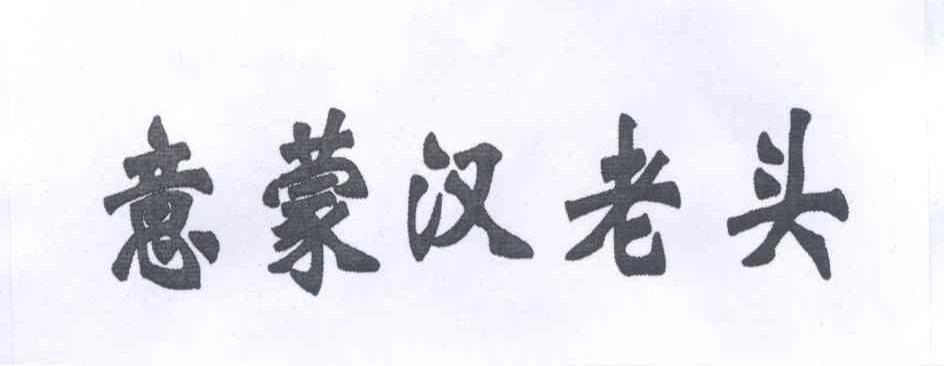 意蒙汉老头